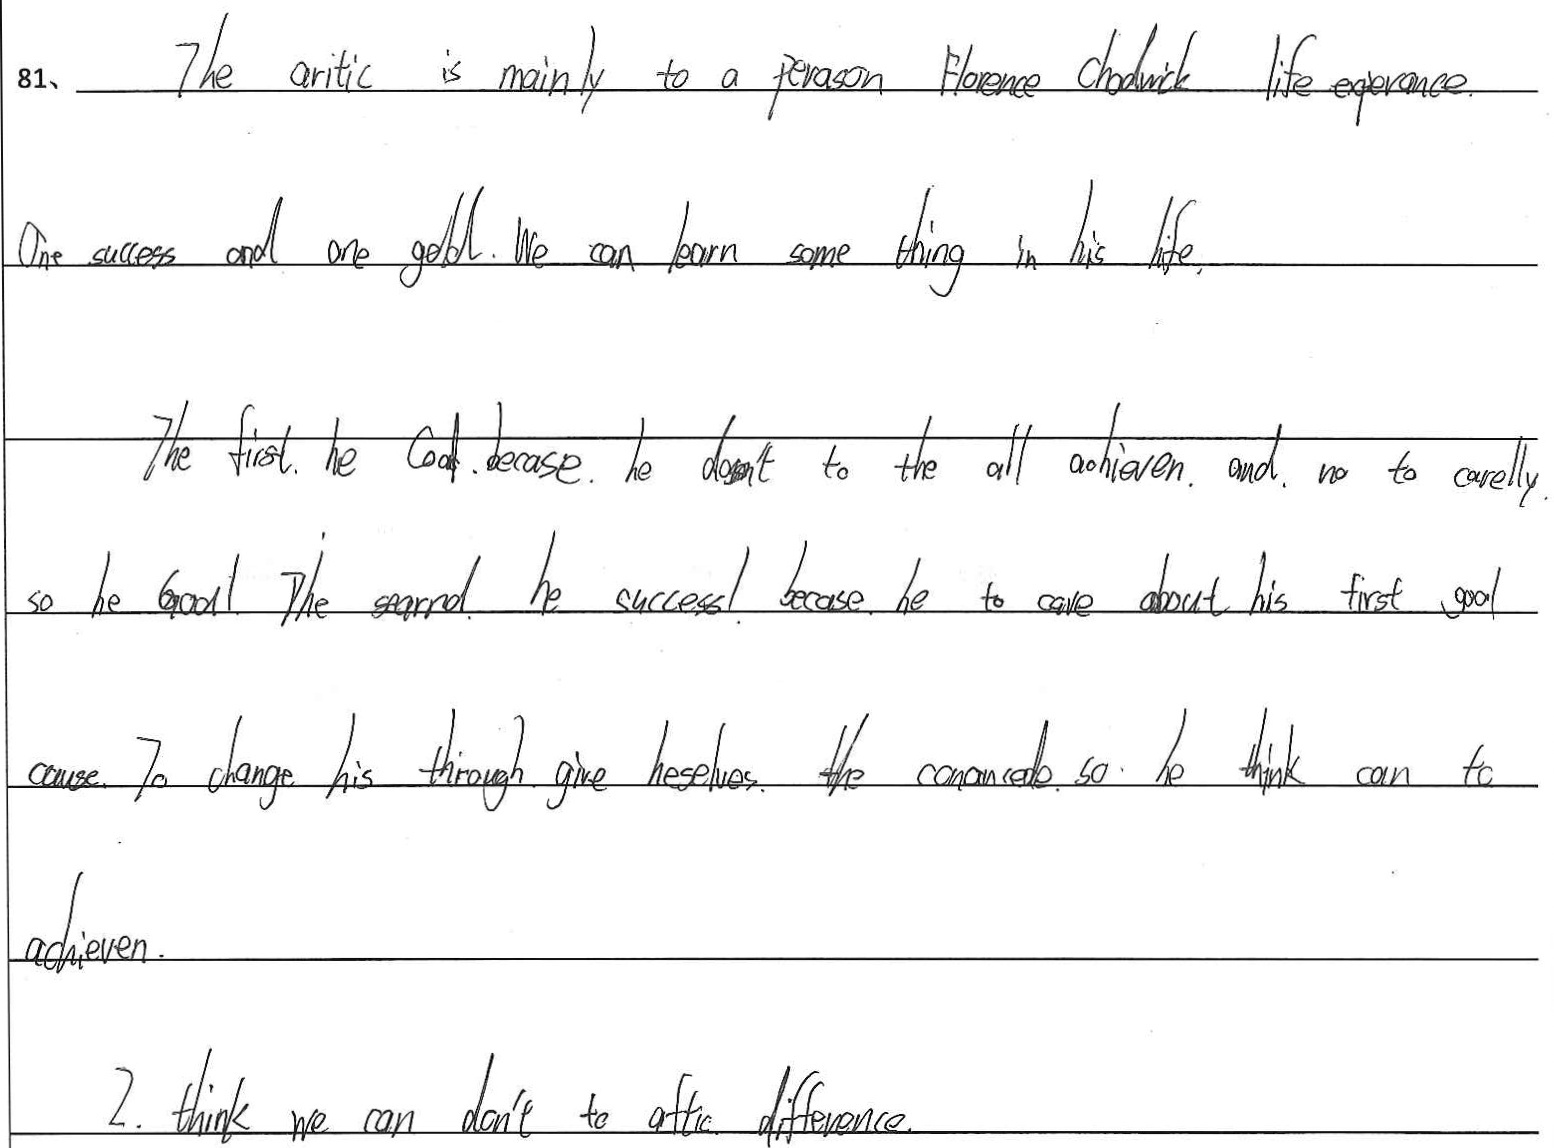 81、 The aritic is mainly to a perason Florence Chadwick life experance.
One success and one gold. We can learn some thing in his life.
The first. he . becase. he doesn't to the all achieven. and. no to carelly.
so he Goal! The he success! becase. he to care about his first goal
cause. To change his through give heselves. the so. he think can to
achieven.
2. think we can don't to difference.